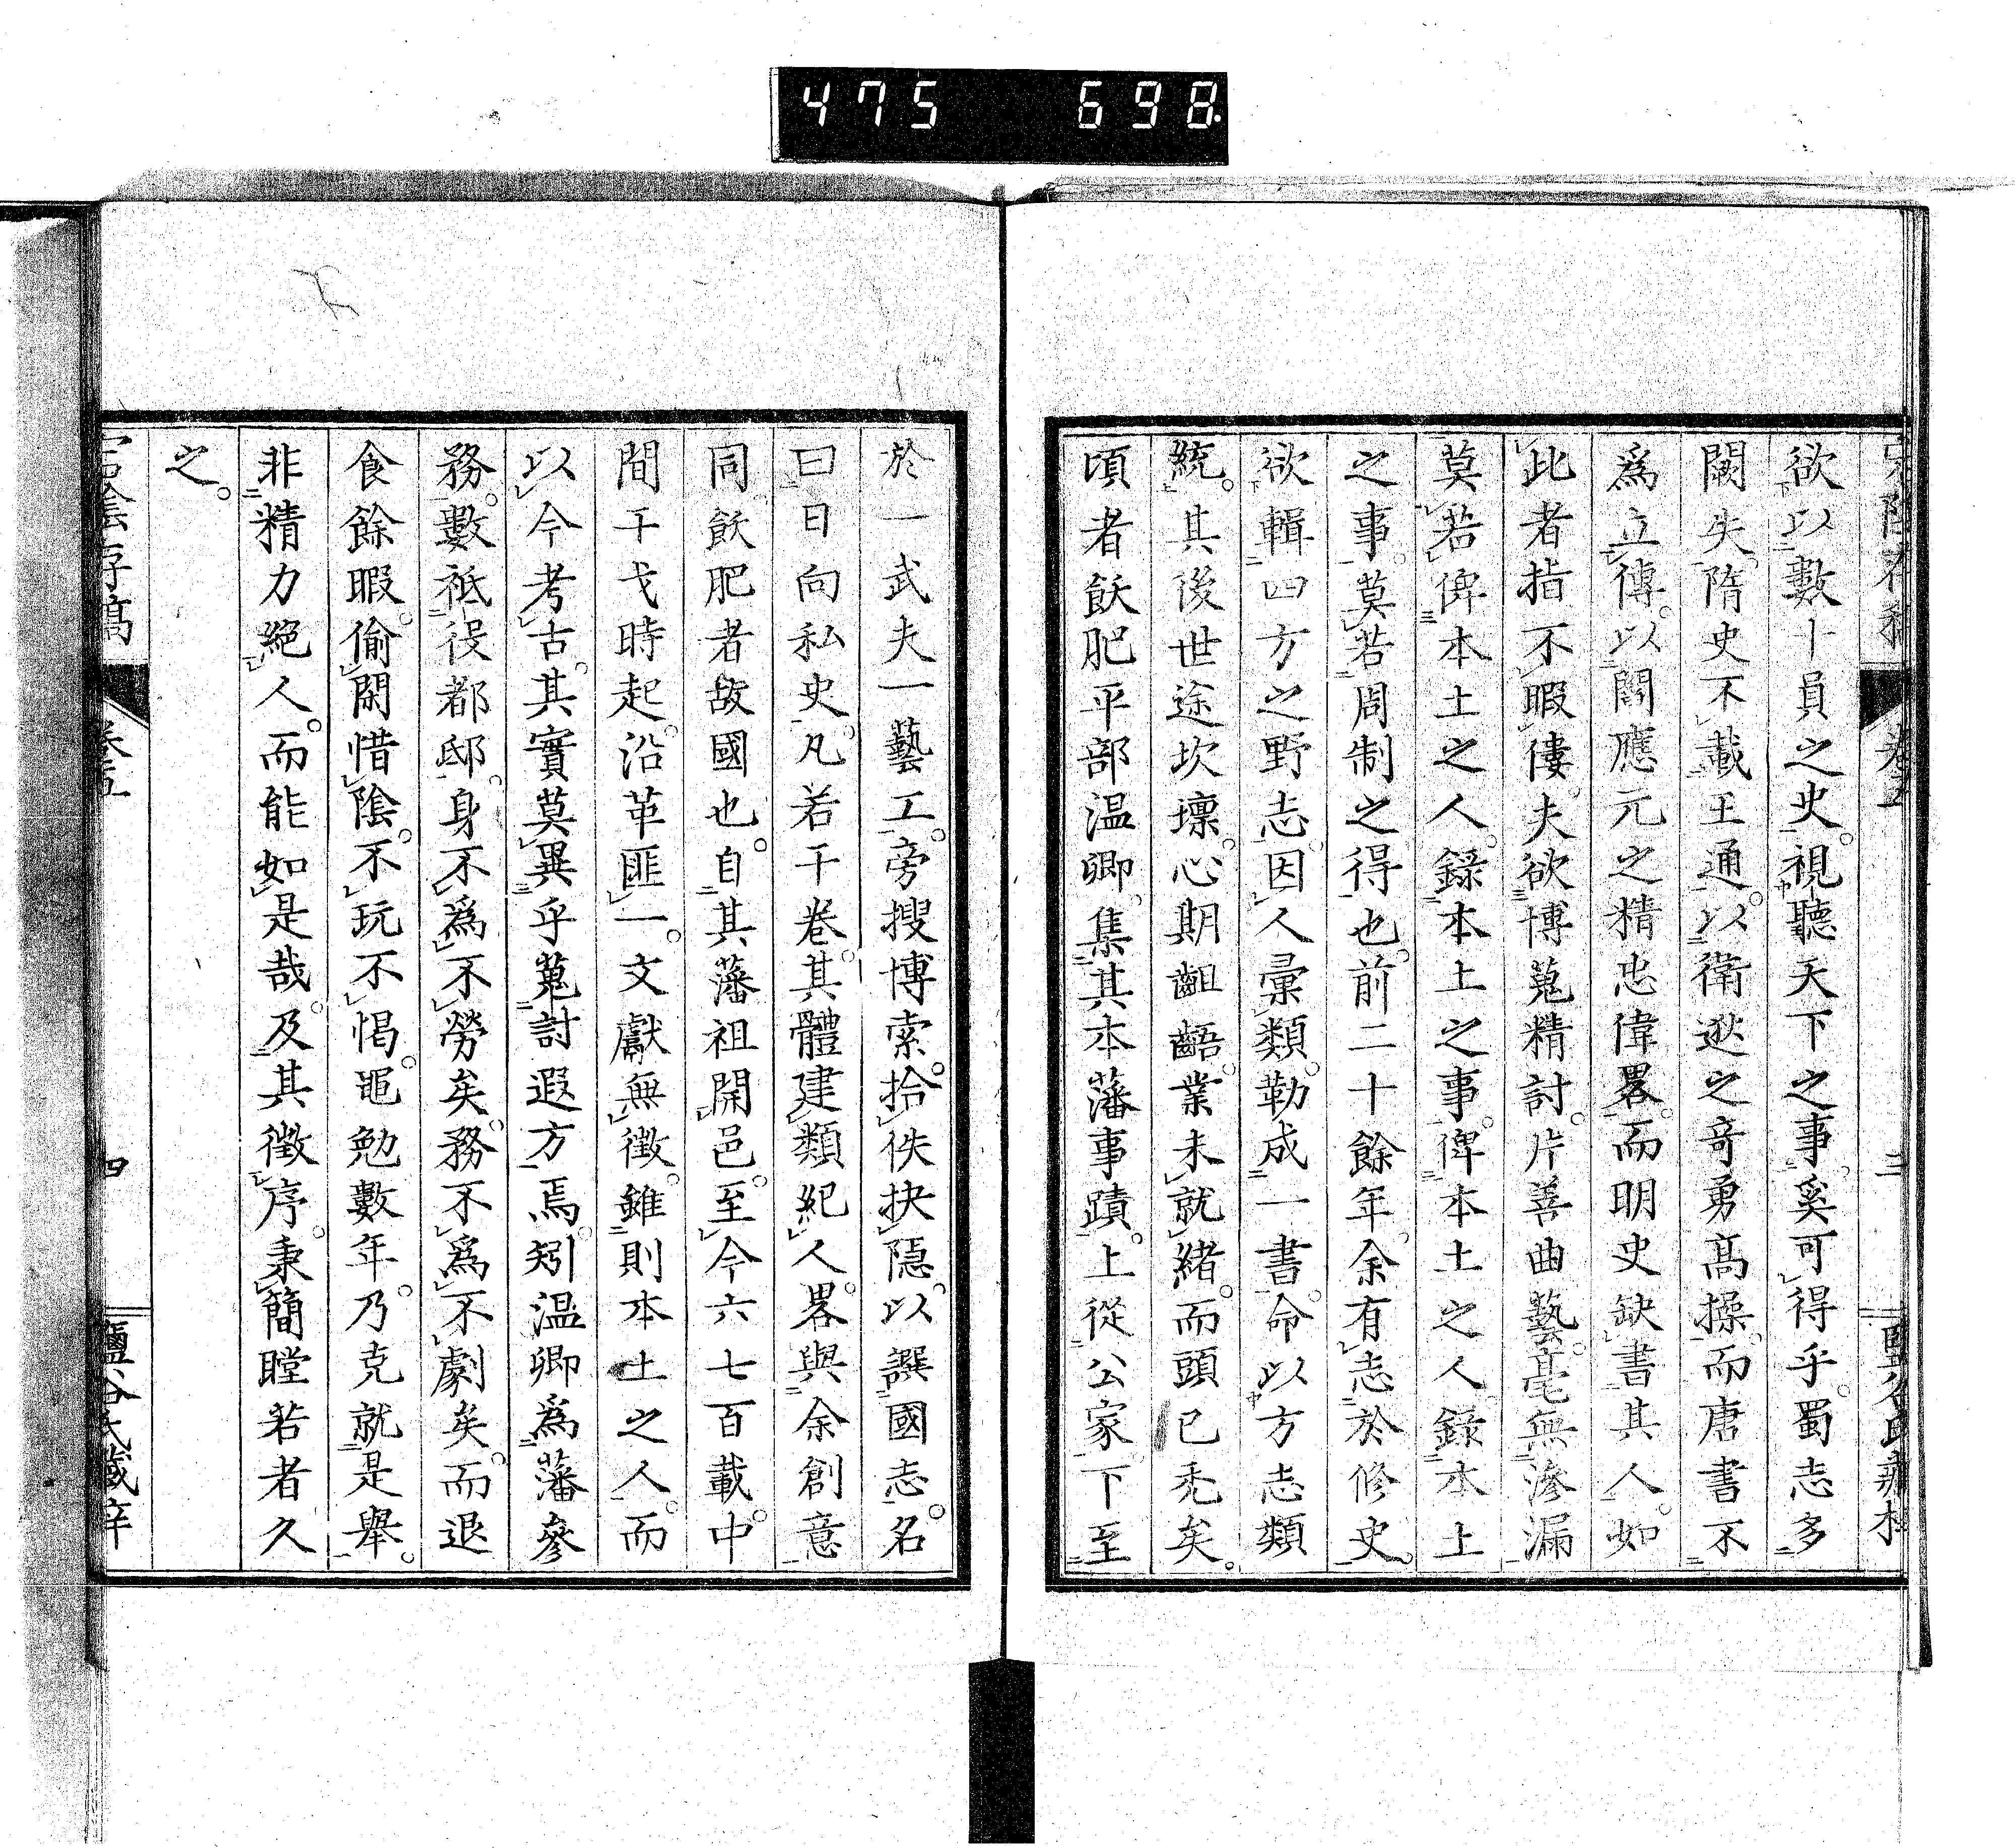 475 698
欲以數十員之史。視聽天下之事。奚可得乎。蜀志多
闕失。隋史不載王通。以衛逖之竒勇髙操。而唐書不
爲立傳。以闊應元之精忠偉畧。而明史缺書其人。如
此者指不暇僂。夫欲博蒐精討。片善曲藝。毫無滲漏
莫若俾本土之人。錄本土之事。俾本土之人。錄本土
之事。莫若周制之得也。前二十餘年。余有志於修史。
欲輯四方之野志。因人彙類。勒成一書。命以方志類
統。其後世途坎壈。心期齟齬。業未就緒。而頭已禿矣。
頃者飫肥平部温卿。集其本藩事蹟。上從公家。下至
於一武夫一藝工。旁搜博索。拾佚抉隱。以譔國志。名
曰日向私史。凡若干卷。其體建類紀人。畧與余創意
同。飫肥者故國也。自其藩祖開邑。至今六七百載。中
間干戈時起。沿革匪一。文獻無徵。雖則本土之人。而
以今考古。其實莫異乎蒐討遐方焉。矧温卿爲藩參
務。數祗役都邸。身不爲不勞矣。務不爲不劇矣。而退
食餘暇。偷閑惜陰。不玩不愒。黽勉數年。乃克就是舉。
非精力絕人。而能如是哉。及其徵序。秉簡瞠若者久
之。
卷五
四